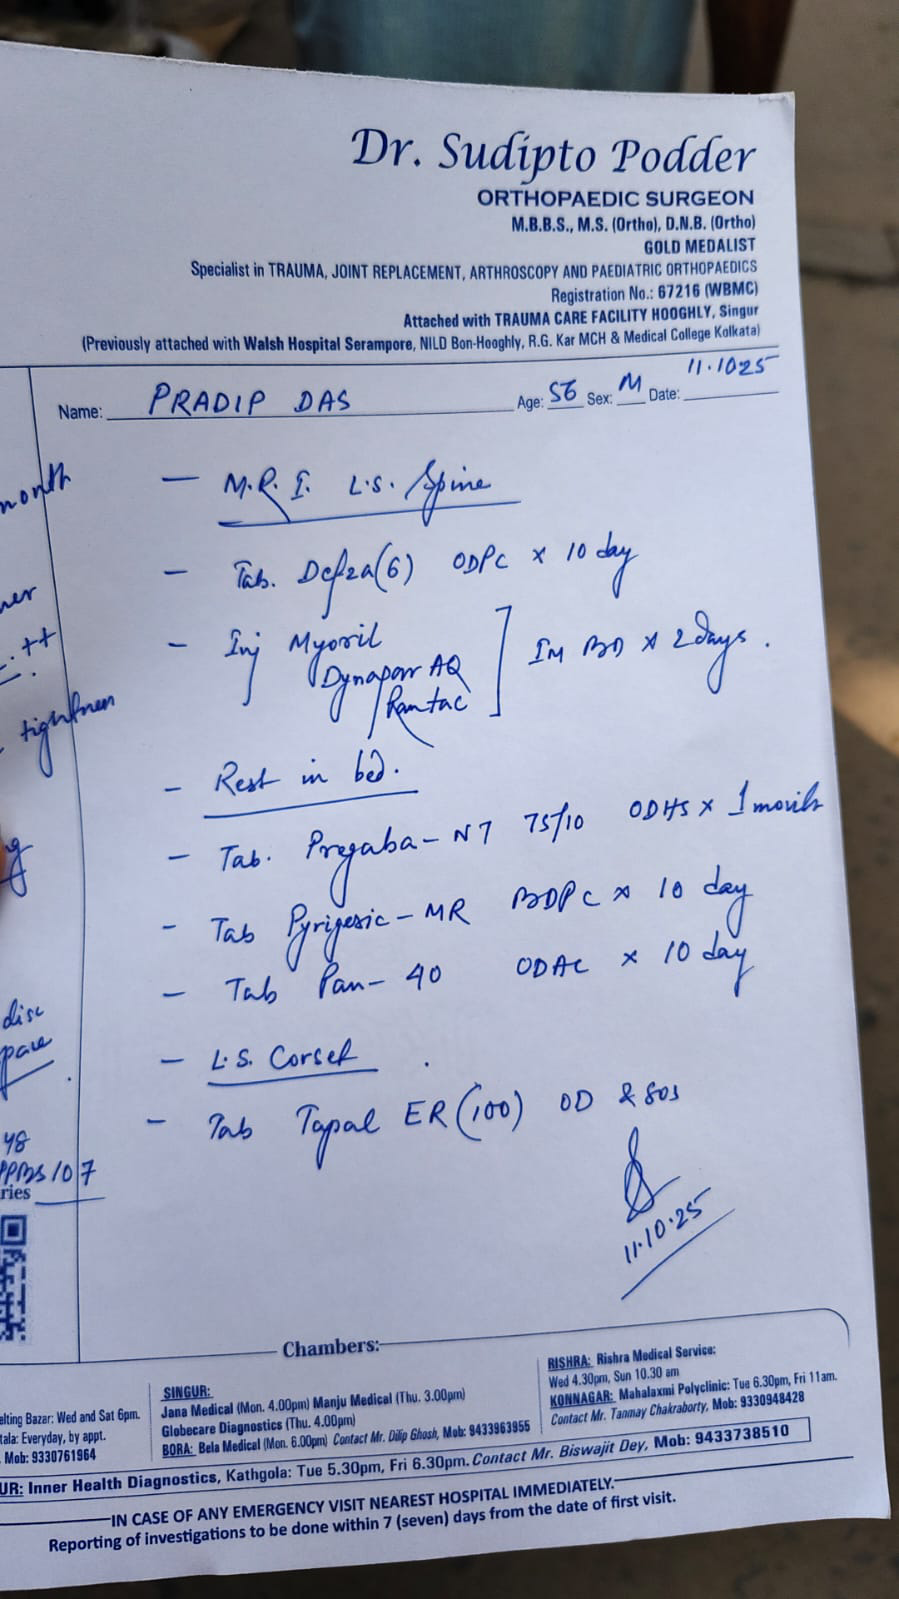 Dr. Sudipto Podder
ORTHOPAEDIC SURGEON
M.B.B.S., M.S. (Ortho), D.N.B. (Ortho)
GOLD MEDALIST
Specialist in TRAUMA, JOINT REPLACEMENT, ARTHROSCOPY AND PAEDIATRIC ORTHOPAEDICS
Registration No.: 67216 (WBMC)
Attached with TRAUMA CARE FACILITY HOOGHLY, Singur
(Previously attached with Walsh Hospital Serampore, NILD Bon-Hooghly, R.G. Kar MCH & Medical College Kolkata)
Name: PRADIP DAS Age: 56 Sex: M Date: 11.10.25
month
- M.R.I. L.S. Spine
- Tab. Defza(6) ODPC x 10 day
++
- Inj Myoril
Dynapar AQ
Rantac
] IM BD x 2 days.
tightness
- Rest in bed.
- Tab. Pregaba-NT 75/10 ODHS x 1 month
- Tab Pyrigesic-MR BDPC x 10 day
- Tab Pan-40 ODAC x 10 day
disc
space
- L.S. Corset
- Tab Tapal ER (100) OD & SOS
48
PPBS 107
ries
11.10.25
Chambers:
elting Bazar: Wed and Sat 6pm.
tala: Everyday, by appt.
Mob: 9330761964
SINGUR:
Jana Medical (Mon. 4.00pm) Manju Medical (Thu. 3.00pm)
Globecare Diagnostics (Thu. 4.00pm)
BORA: Bela Medical (Mon. 6.00pm) Contact Mr. Dilip Ghosh, Mob: 9433963955
RISHRA: Rishra Medical Service:
Wed 4.30pm, Sun 10.30 am
KONNAGAR: Mahalaxmi Polyclinic: Tue 6.30pm, Fri 11am.
Contact Mr. Tanmay Chakraborty, Mob: 9330948428
UR: Inner Health Diagnostics, Kathgola: Tue 5.30pm, Fri 6.30pm. Contact Mr. Biswajit Dey, Mob: 9433738510
IN CASE OF ANY EMERGENCY VISIT NEAREST HOSPITAL IMMEDIATELY.
Reporting of investigations to be done within 7 (seven) days from the date of first visit.